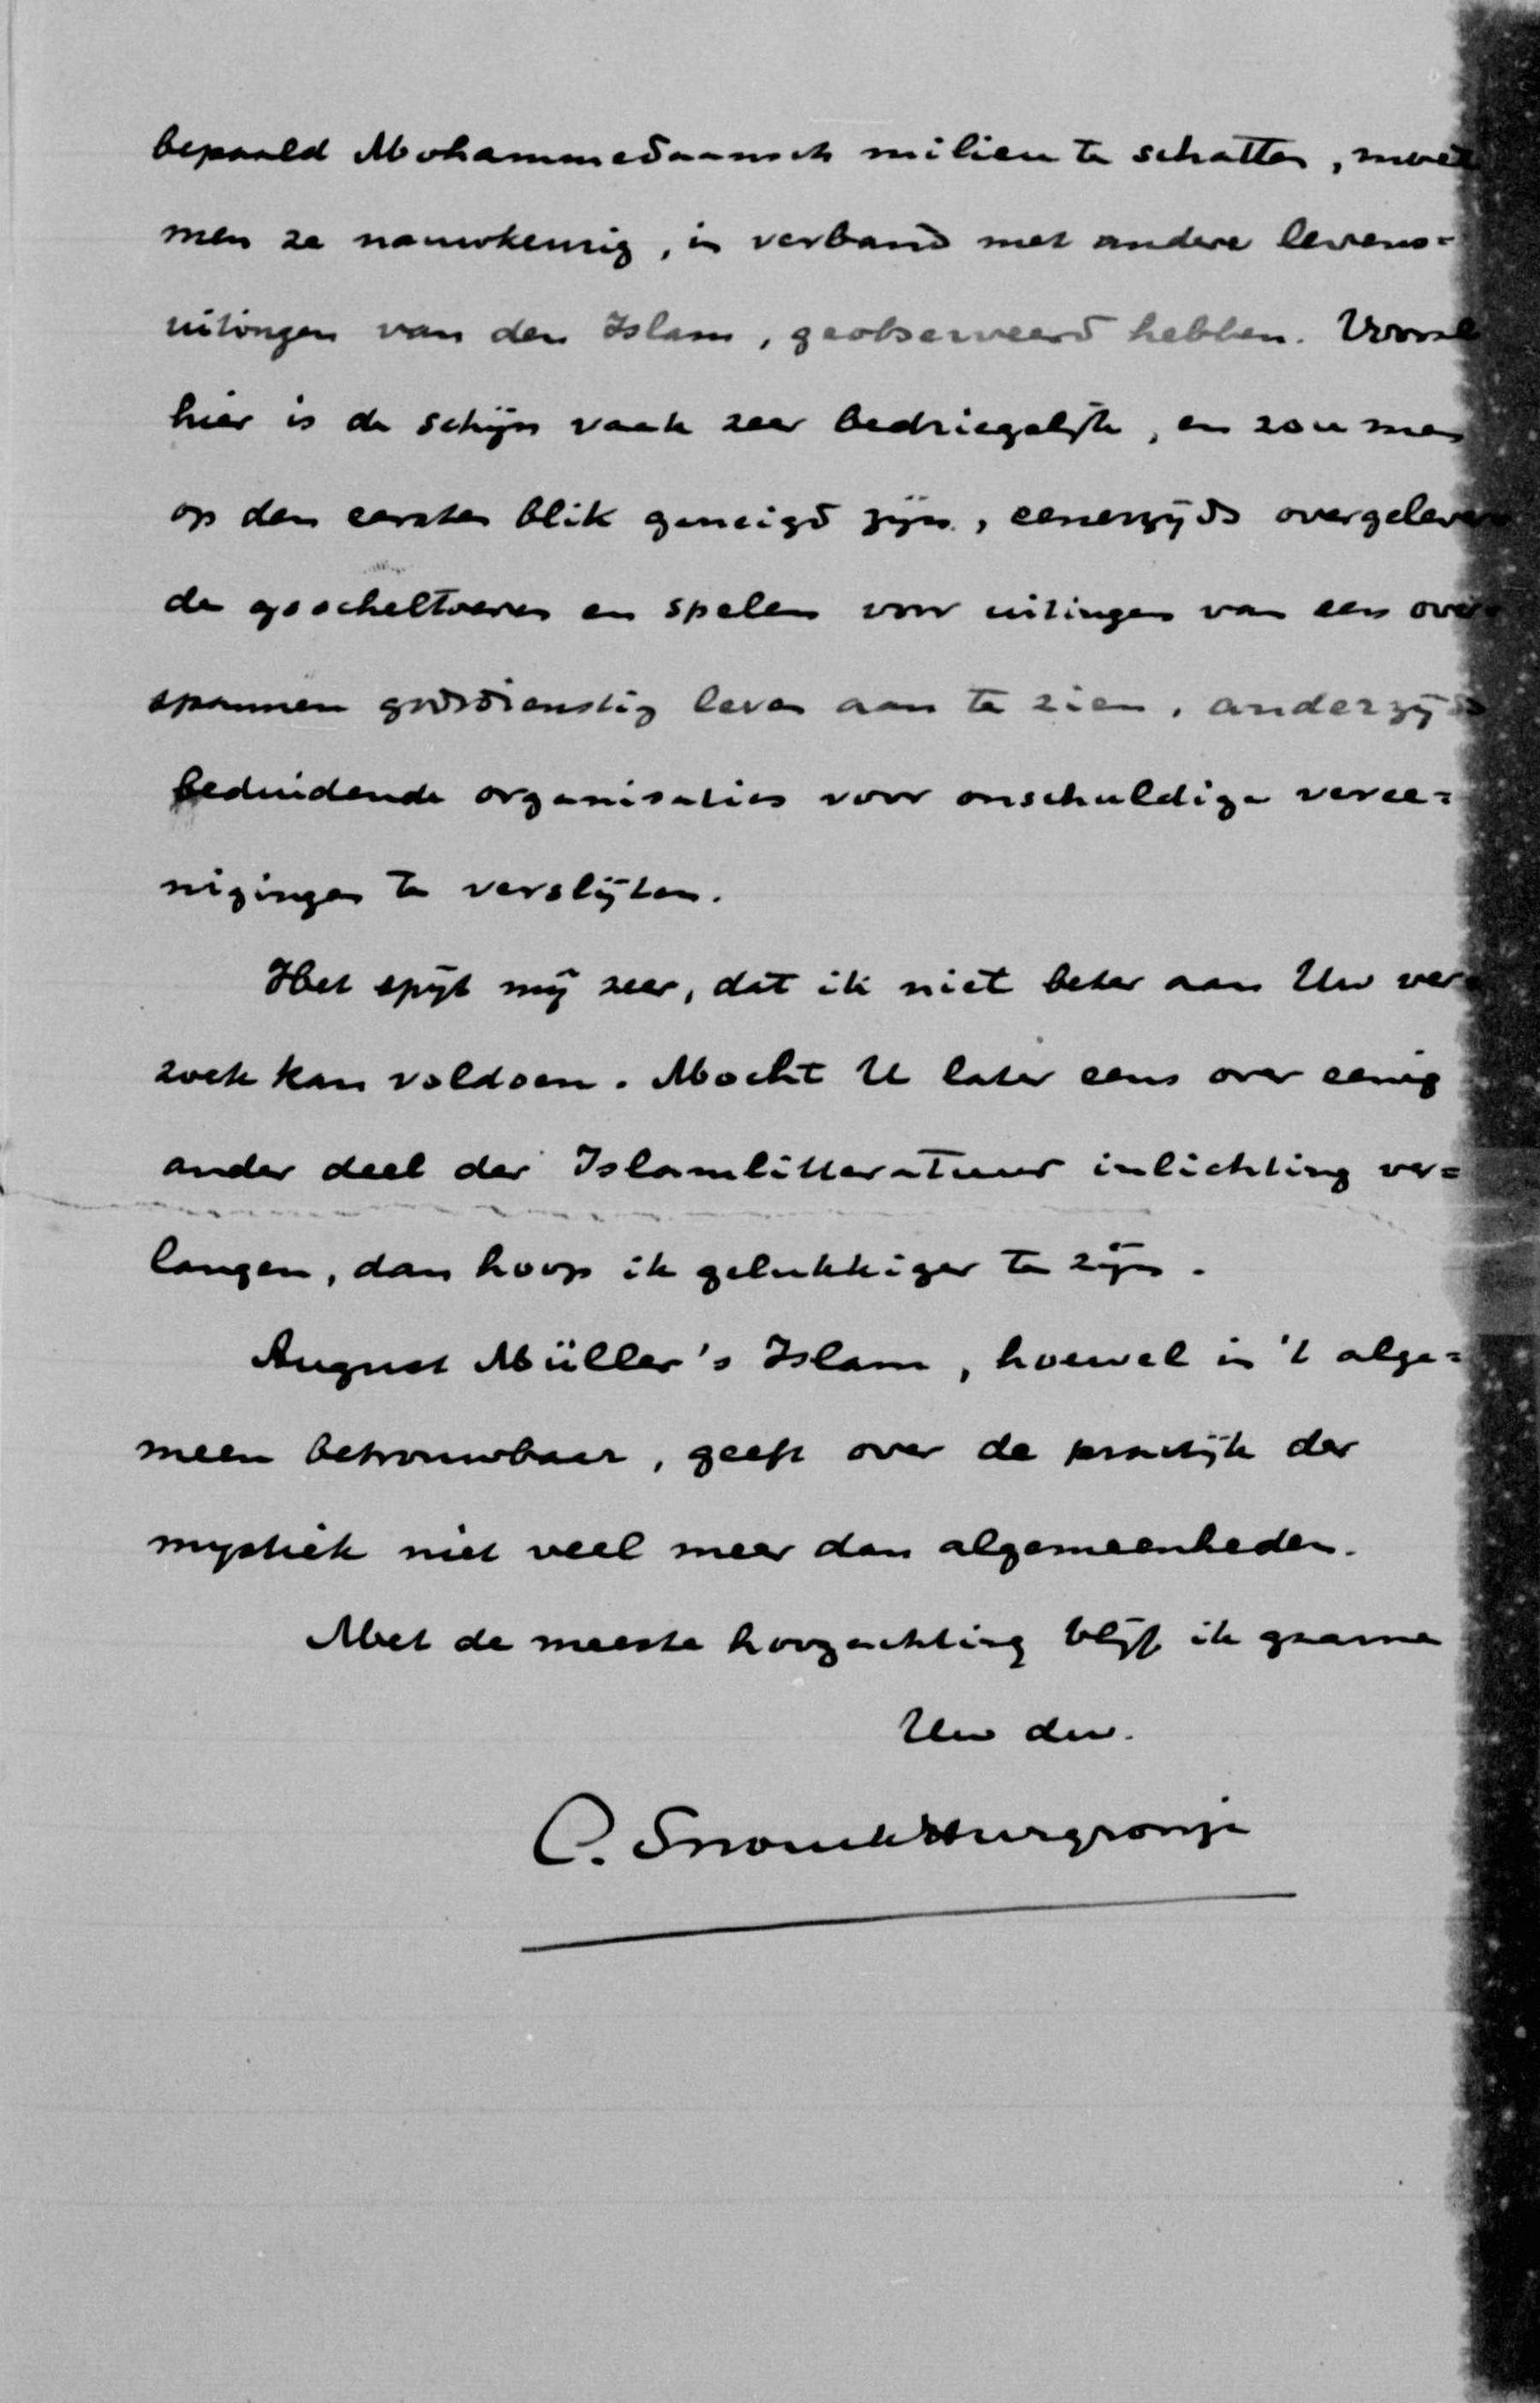 bepaald Mohammedaansch milieu te schatten, moet
men ze nauwkeurig, in verband met andere levens=
uitingen van den Islam, geobserveerd hebben. Vooral
hier is de schijn vaak zeer bedriegelijk, en zou men
op den eersten blik geneigd zijn, eenerzijds overgelever=
de goocheltoeren en spelen voor uitingen van een over=
spannen godsdienstig leven aan te zien, anderzijds
beduidende organisaties voor onschuldige veree=
nigingen te verslijten.
Het spijt mij zeer, dat ik niet beter aan Uw ver=
zoek kan voldoen. Mocht U later eens over eenig
ander deel der Islamlitteratuur inlichting ver=
langen, dan hoop ik gelukkiger te zijn.
August Müller's Islam, hoewel in 't alge=
meen betrouwbaar, geeft over de practijk der
mystiek niet veel meer dan algemeenheden.
Met de meeste hoogachting blijf ik gaarne
Uw dw.
C. Snouck Hurgronje